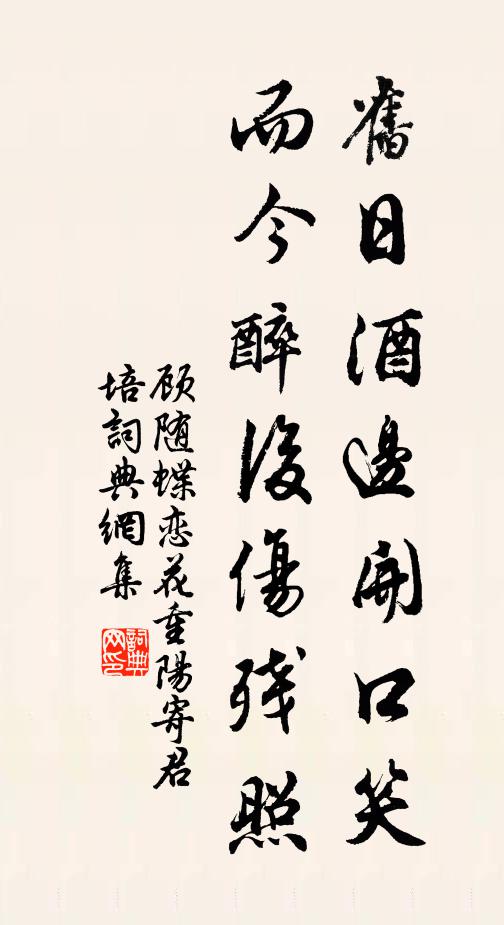 舊日酒邊開口笑
而今醉後傷残照
顾随蝶恋花重陽寄君
培詞典網集
詞典网印